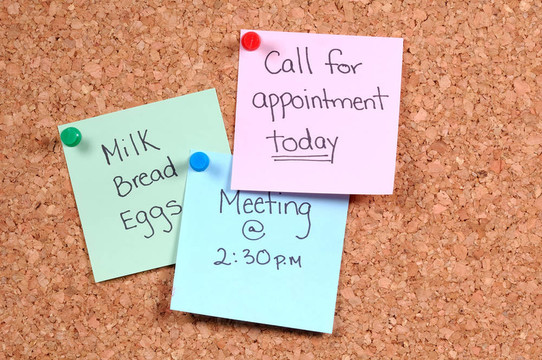 Call for
appointment
today
Milk
Bread
Eggs
Meeting
@
2:30 P.M